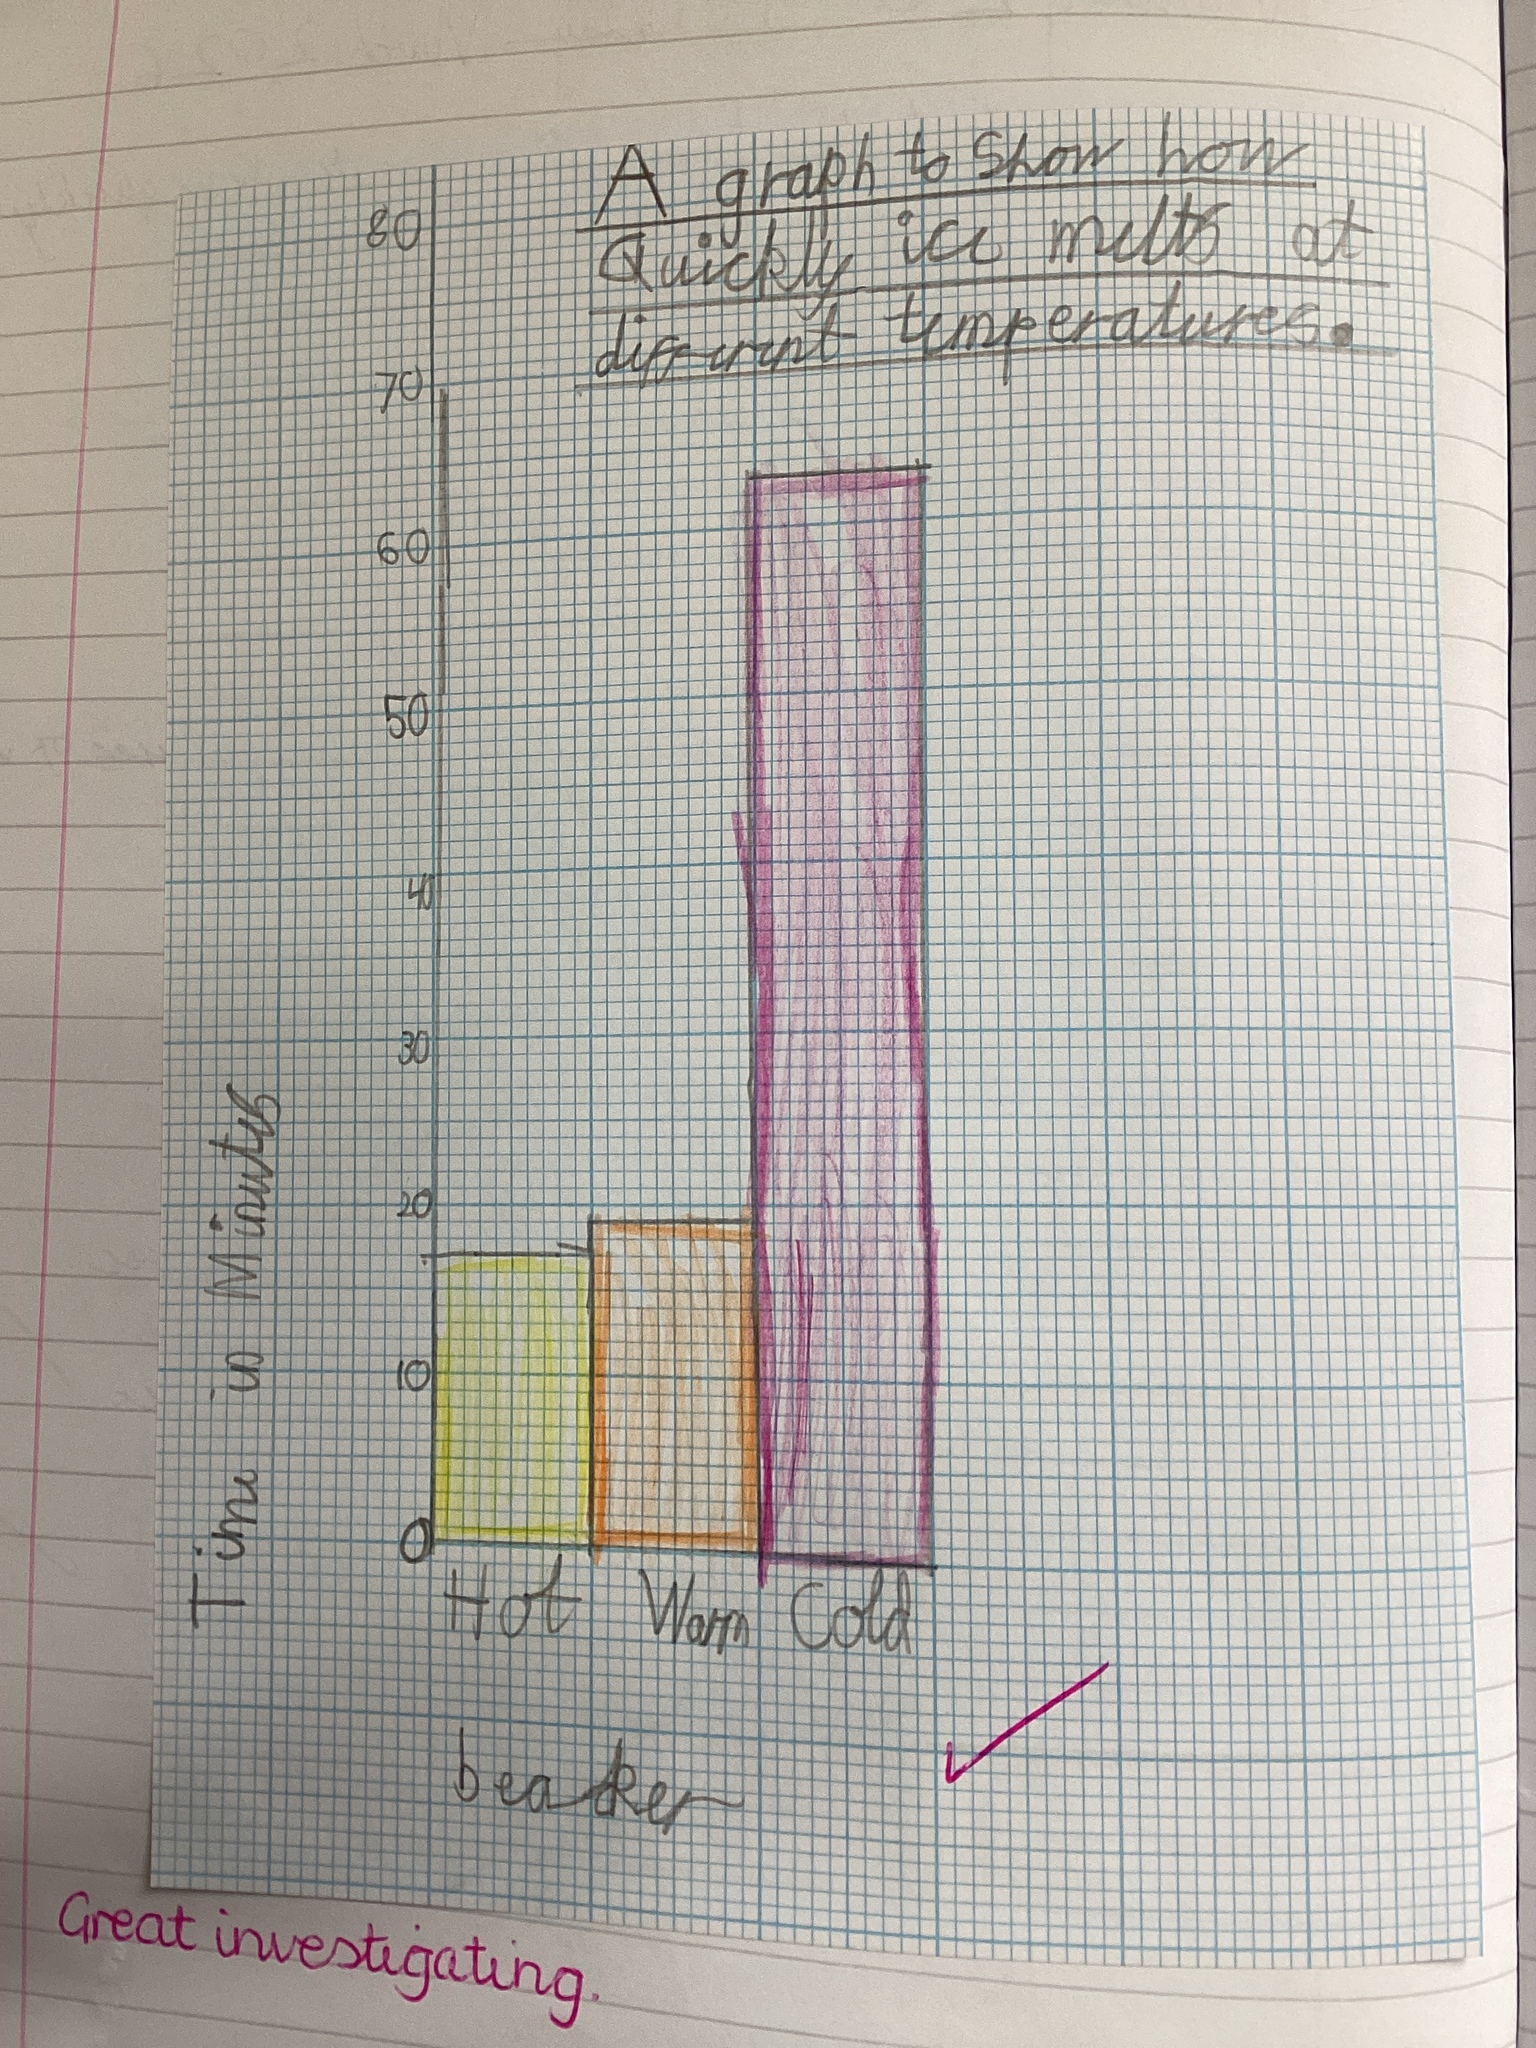 A graph to Show how
Quickly ice melts at
different temperatures.
80
70
60
50
40
30
20
10
0
Time in Minutes
Hot Warm Cold
beaker
Great investigating.